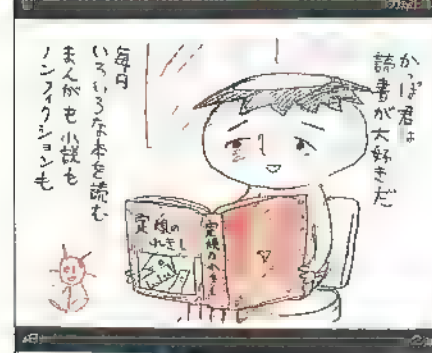 かっぱ君は
読書が大好きだ
毎日
いろいろな本を読む
まんがも小説も
ノンフィクションも
れきし